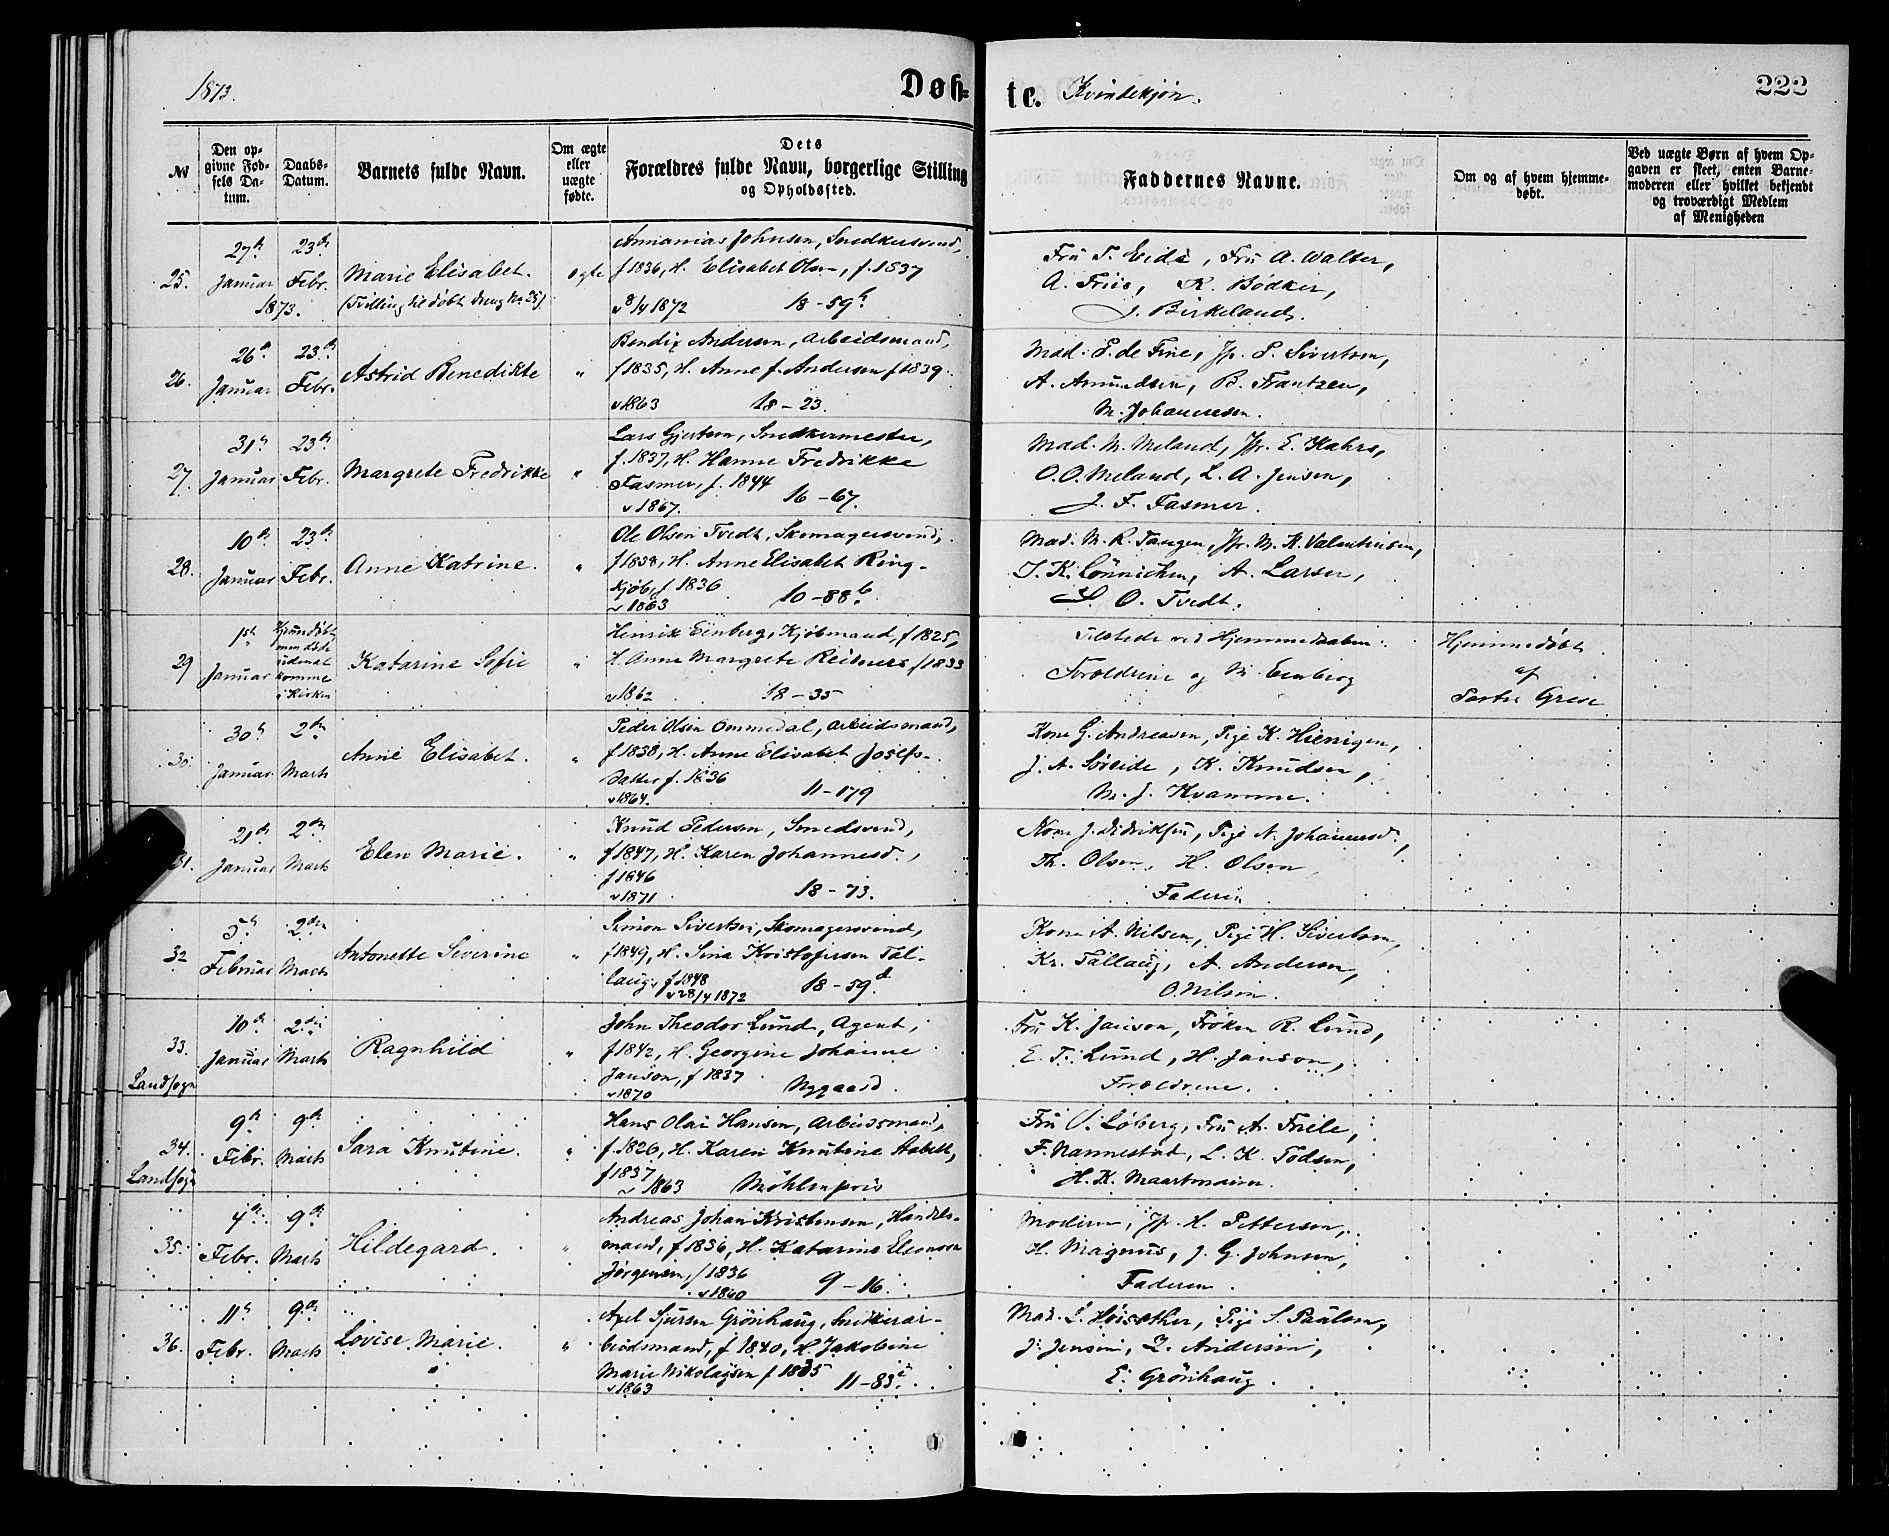 1873.
Døb-
te. Kvindekjøn.
222
№
Den op-
givne Fød-
sels Da-
tum.
Daabs-
Datum.
Barnets fulde Navn.
Om ægte
eller
uægte
fødte.
Dets
Forældres fulde Navn, borgerlige Stilling
og Opholdssted.
Faddernes Navne.
Om og af hvem hjemme-
døbt.
Ved uægte Børn af hvem Op-
gaven er skeet, enten Barne-
moderen eller hvilket bekjendt
og troværdigt Medlem
af Menigheden
25.
27de
Januar
1873.
23de
Febr.
Marie Elisabet.
(Tvilling til døbt dreng No 25)
ægte
Annanias Johnsen, Snedkersvend,
f 1836, H. Elisabet Olsen, f. 1837
v 8/4 1872 18-59b
Fru T. Eide, Fru A. Walter,
A. Friis, K. Bødker,
J. Birkeland.
26.
26de
Januar
23de
Febr.
Astrid Benedikte
"
Bendix Andersen, Arbeidsmand,
f 1835, H. Anne f. Andersen f 1839
v 1863 18-23.
Mad. S. de Fine, Jfr. S. Sivertsen,
A. Amundsen, B. Frantzen,
M. Johannesen.
27.
31te
Januar
23de
Febr.
Margrete Fredrikke
"
Lars Gjertsen, Snedkermester,
f. 1837, H. Hanne Fredrikke
Fasmer, f. 1844
v 1867. 16-67.
Mad. M. Meland, Jfr. E. Kahrs,
O. O. Meland, L. A. Jensen,
J. F. Fasmer.
28.
10de
Januar
23de
Febr.
Anne Katrine.
"
Ole Olsen Tvedt, Skomagersvend,
f 1838, H. Anne Elisabet Ring-
kjøb, f 1836
v 1863 10-88b
Mad. M. R. Tangen, Jfr. M. K. Valentinsen,
J. K. Lönnichen, A. Larsen,
S. O. Tvedt.
29
1ste
Januar
Hjemmedøbt
men døde
uden at
komme
i Kirken
Katarine Sofie
"
Henrik Eenberg, Kjøbmand, f 1825,
H. Anne Margrete Reimers f 1833
v 1862 18-35
Tilstede ved Hjemmedaaben:
Forældrene og M. Eenberg
Hjemmedøbt
af
Pastor Greve
30.
30te
Januar
2den
Marts
Anne Elisabet.
"
Peder Olsen Ommedal, Arbeidsmand,
f 1838, H. Anne Elisabet Josefs-
datter f. 1836
v 1864. 11-179
Kone G. Andreasen, Pige K. Hienigen,
J. A. Søreide, K. Knudsen,
M. J. Kvamme.
31.
21de
Januar
2den
Marts
Elen Marie.
"
Knud Pedersen, Smedsvend,
f 1847, H. Karen Johannesd.,
f 1846
v 1871 18-73.
Kone J. Didriksen, Pige A. Johannesd.,
Th. Olsen, H. Olsen
Faderen
32
5te
Februar
2den
Marts
Antonette Severine
"
Simon Sivertsen, Skomagersvend,
f 1849, H. Sina Kristofersen Tal-
laug, f 1848
v 28/4 1872 18-59d.
Kone A. Nilsen, Pige H. Sivertsen,
Kr. Tallaug, A. Andersen,
O. Nilsen.
33.
Landsogn
10de
Januar
2den
Marts
Ragnhild
"
John Theodor Lund, Agent,
f 1842, H. Georgine Johanne
Janson, f 1837
v 1870 Nygaard.
Fru K. Janson, Frøken R. Lund,
E. T. Lund, H. Janson,
Forældrene.
34.
Landsogn
9de
Febr.
9de
Marts
Sara Knutine.
"
Hans Olai Hansen, Arbeidsmand,
f. 1826, H. Karen Knutine Stabell,
f 1837
v 1863 Möhlenpris
Fru V. Løberg, Fru A. Friele,
F. Nannestad, L. K. Todsen,
H. K. Maartmann.
35.
4de
Febr.
9de
Marts
Hildegard.
"
Andreas Johan Kristensen, Handels-
mand, f 1836, H. Katarine Eleonora
Jørgensen, f 1836
v 1860 9-16.
Moderen, Jfr. H. Pettersen,
H. Magnus, J. G. Johnsen,
Faderen.
36.
11te
Febr.
9de
Marts
Lovise Marie.
"
Axel Sjursen Grönhaug, Snedkerar-
beidsmand, f 1840, H. Jakobine
Marie Nikolaysen f 1835
v 1863 11-83
Mad. L. Høisæther, Pige S. Paulsen,
J. Jensen, L. Andersen,
E. Grönhaug.